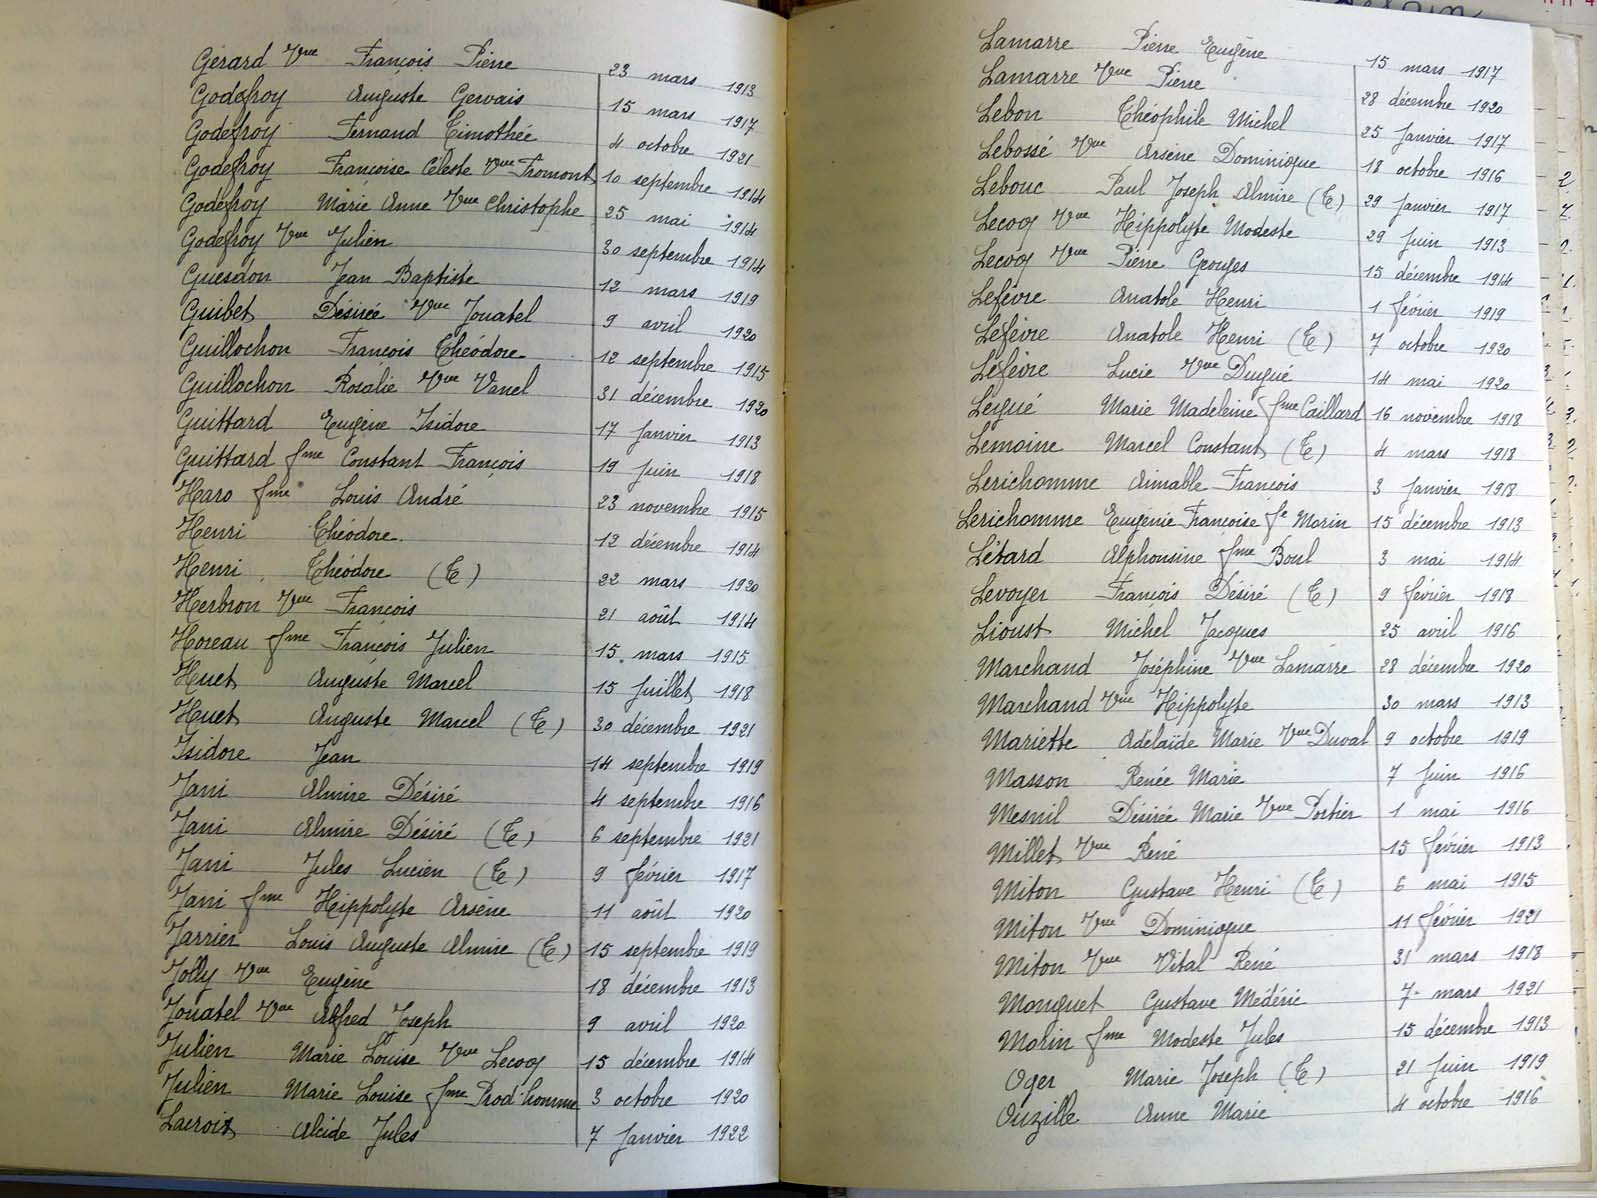 Gérard Vve François Pierre 23 mars 1913
Godefroy Auguste Gervais 15 mars 1917
Godefroy Fernand Timothée 4 octobre 1921
Godefroy Françoise Céleste Vve Fromont 10 septembre 1914
Godefroy Marie Anne Vve Christophe 25 mai 1914
Godefroy Vve Julien 30 septembre 1914
Guesdon Jean Baptiste 12 mars 1919
Guibet Désirée Vve Jouatel 9 avril 1920
Guillochon François Théodore 12 septembre 1915
Guillochon Rosalie Vve Vanel 31 décembre 1920
Guittard Eugène Isidore 17 Janvier 1913
Guittard fme Constant François 19 Juin 1918
Haro fme Louis André 23 novembre 1915
Henri Théodore 12 décembre 1914
Henri Théodore (E) 22 mars 1920
Herbron Vve François 21 août 1914
Horeau fme François Julien 15 mars 1915
Huet Auguste Marcel 15 Juillet 1918
Huet Auguste Marcel (E) 30 décembre 1921
Isidore Jean 14 septembre 1919
Jani Almire Désiré 4 septembre 1916
Jani Almire Désiré (E) 6 septembre 1921
Jani Jules Lucien (E) 9 février 1917
Jani fme Hippolyte Arsène 11 août 1920
Jarrier Louis Auguste Almire (E) 15 septembre 1919
Jolly Vve Eugène 18 décembre 1913
Jouatel Vve Alfred Joseph 9 avril 1920
Julien Marie Louise Vve Lecocq 15 décembre 1914
Julien Marie Louise fme Prod'homme 3 octobre 1920
Lacroix Alcide Jules 7 Janvier 1922
Lamarre Pierre Eugène 15 mars 1917
Lamarre Vve Pierre 28 décembre 1920
Lebon Théophile Michel 25 Janvier 1917
Lebossé Vve Arsène Dominique 18 octobre 1916
Lebouc Paul Joseph Almire (E) 29 Janvier 1917
Lecocq Vve Hippolyte Modeste 29 Juin 1913
Lecocq Vve Pierre Georges 15 décembre 1914
Lefèvre Anatole Henri 1 février 1919
Lefèvre Anatole Henri (E) 7 octobre 1920
Lefèvre Lucie Vve Dugué 14 mai 1920
Legué Marie Madeleine fme Caillard 16 novembre 1918
Lemoine Marcel Constant (E) 4 mars 1918
Lerichomme Aimable François 3 Janvier 1918
Lerichomme Eugénie Françoise fe Morin 15 décembre 1913
Létard Alphonsine fme Boul 3 mai 1914
Levoyer François Désiré (E) 9 février 1918
Lioust Michel Jacques 25 avril 1916
Marchand Joséphine Vve Lamarre 28 décembre 1920
Marchand Vve Hippolyte 30 mars 1913
Mariette Adélaïde Marie Vve Duval 9 octobre 1919
Masson Renée Marie 7 Juin 1916
Mesnil Désirée Marie Vve Portier 1 mai 1916
Millet Vve René 15 février 1913
Miton Gustave Henri (E) 6 mai 1915
Miton Vve Dominique 11 février 1921
Miton Vve Vital René 31 mars 1918
Monguet Gustave Médéric 7 mars 1921
Morin fme Modeste Jules 15 décembre 1913
Oger Marie Joseph (E) 21 Juin 1919
Ouzille Anne Marie 4 octobre 1916